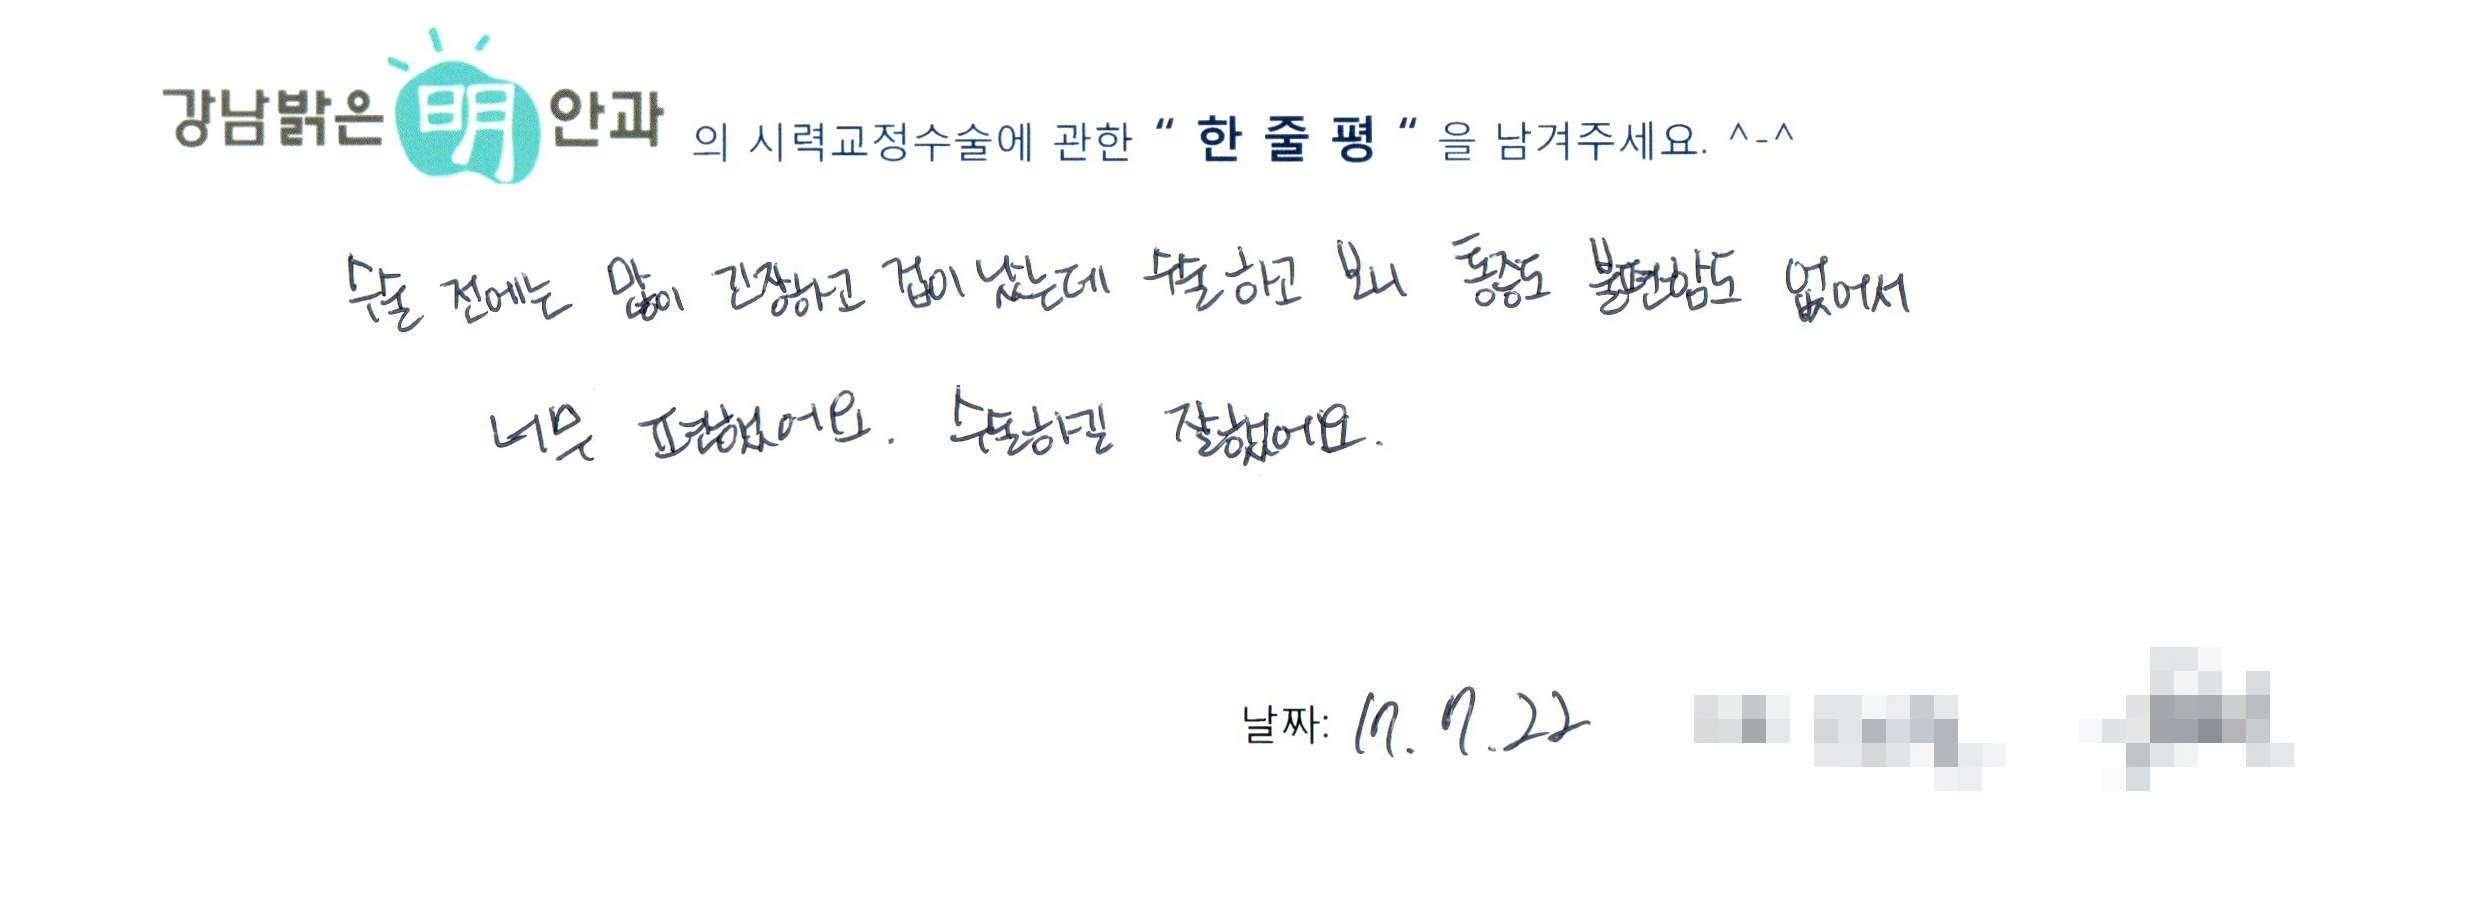 강남밝은明안과 의 시력교정수술에 관한 “ 한 줄 평 “ 을 남겨주세요. ^-^
수술 전에는 많이 긴장하고 겁이 났는데 수술하고 보니 통증도 불편함도 없어서
너무 편했어요. 수술하길 잘했어요.
날짜: 17. 7. 22